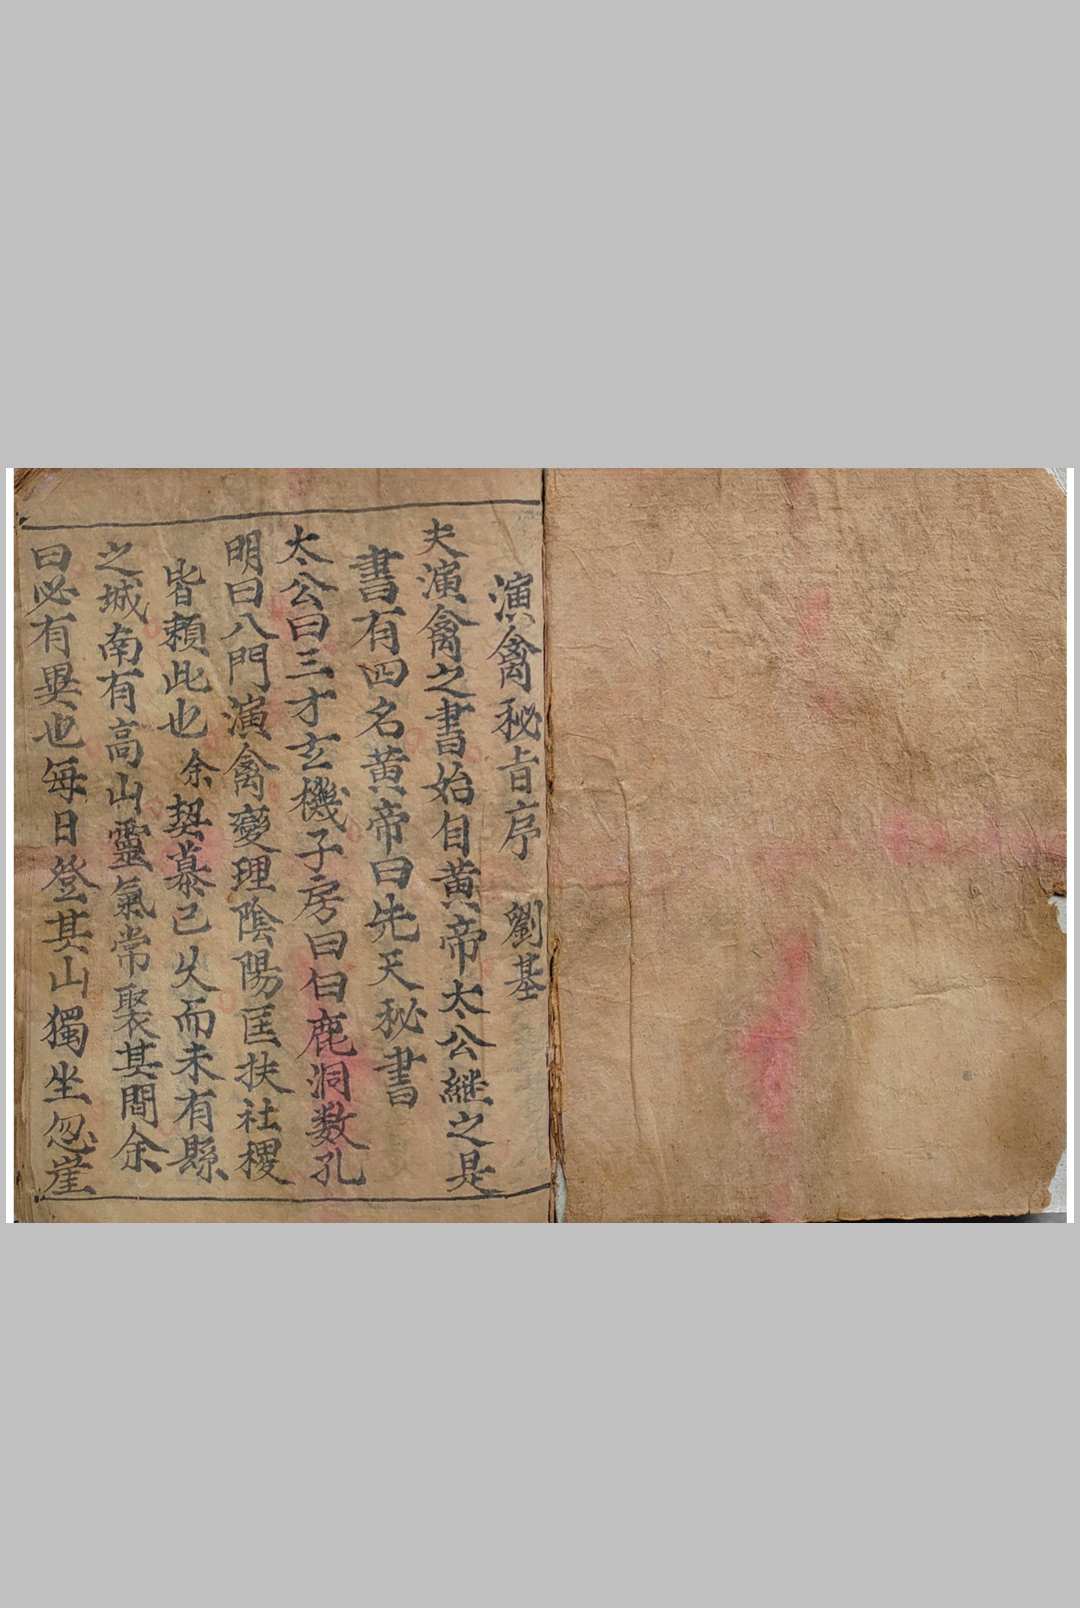 演禽秘旨序 劉基
夫演禽之書始自黄帝太公継之是
書有四名黄帝曰先天秘書
太公曰三才玄機子房曰白鹿洞数孔
明曰八門演禽變理陰陽匡扶社稷
皆賴此也余契慕已久而未有縣
之城南有高山靈氣常聚其間余
曰必有異也每日登其山獨坐忽崖